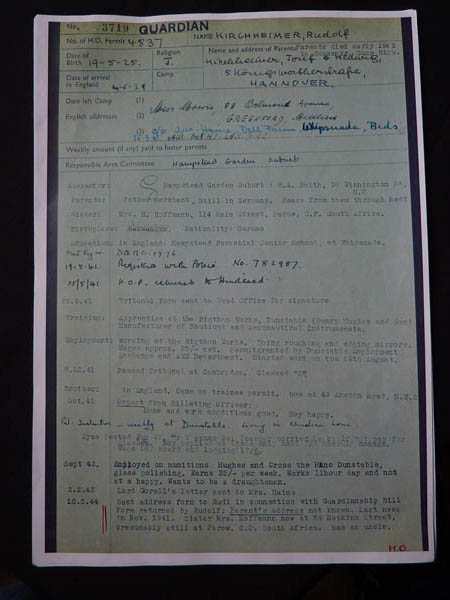 No. 3719 GUARDIAN
NAME KIRCHHEIMER, Rudolf
No. of H.O. Permit 4837
Date of Birth 19-5-25.
Religion J.
Name and address of Parents Parents died early 194
Kirchheimer, Josef & Hedwig,
5 Königswortherstrasse,
HANNOVER.
Date of arrival to England 4-5-39
Camp
Date left Camp (1)
English addresses (2)
Miss Morris, 88 Avenue,
GREENFORD, Middlesex
(3) c/o Mrs. Farm, Whipsnade, Beds.
Weekly amount (if any) paid to foster parents
Responsible Area Committee Hampstead Garden Suburb
Guarantor: Hampstead Garden Suburb : H.A. Smith, 28 Winnington Rd,
N.2
Parents: Father Merchant, Still in Germany. Hears from them through RedX
Sister: Mrs. H. Hoffmann, 114 Main Street, Parow, C.P. South Africa.
Birthplace: Nationality: German
Education in England: Hampstead Parochial Junior School, at Whipsnade.
19-3-41. Registered with Police No. 782987.
/5/41 H.O.P. returned to Hindhead
.8.41 Tribunal form sent to Head Office for signature
Training: Apprentice at the Rigthon Works, Dunstable (Henry Hughes and Son)
Manufacturer of Nautical and Aeronautical Instruments.
Employment: working at the Rigthon Works. Doing roughing and edging mirrors.
Wages approx. 25/- net. Permit granted by Dunstable Employment
Exchange and AES Department. Started work on the 19th August.
8.10.41 Passed Tribunal at Cambridge. Classed "C"
Brother: in England. Came on trainee permit. now at 49 Anston Road, N.W.2
Oct.41 Report from Billeting Officer:
Home and work conditions good. Boy happy.
Sept 42. Employed on munitions. Hughes and Cross the Dunstable,
glass polishing. Earns 35/- per week. Works 11hour day and not
at a happy. Wants to be a draughtsman.
2.2.43 Lord Gorell's letter sent to Mrs. Hains
16.5.44 Sent address form to Rudi in connection with Guardianship Bill
Form returned by Rudolf: Parent's address not known. Last news
in Nov. 1941. Sister Mrs. Hoffmann now at 54 Hopkins Street,
Presumably still at Parow, C.P. South Africa. has an uncle.
H.O.